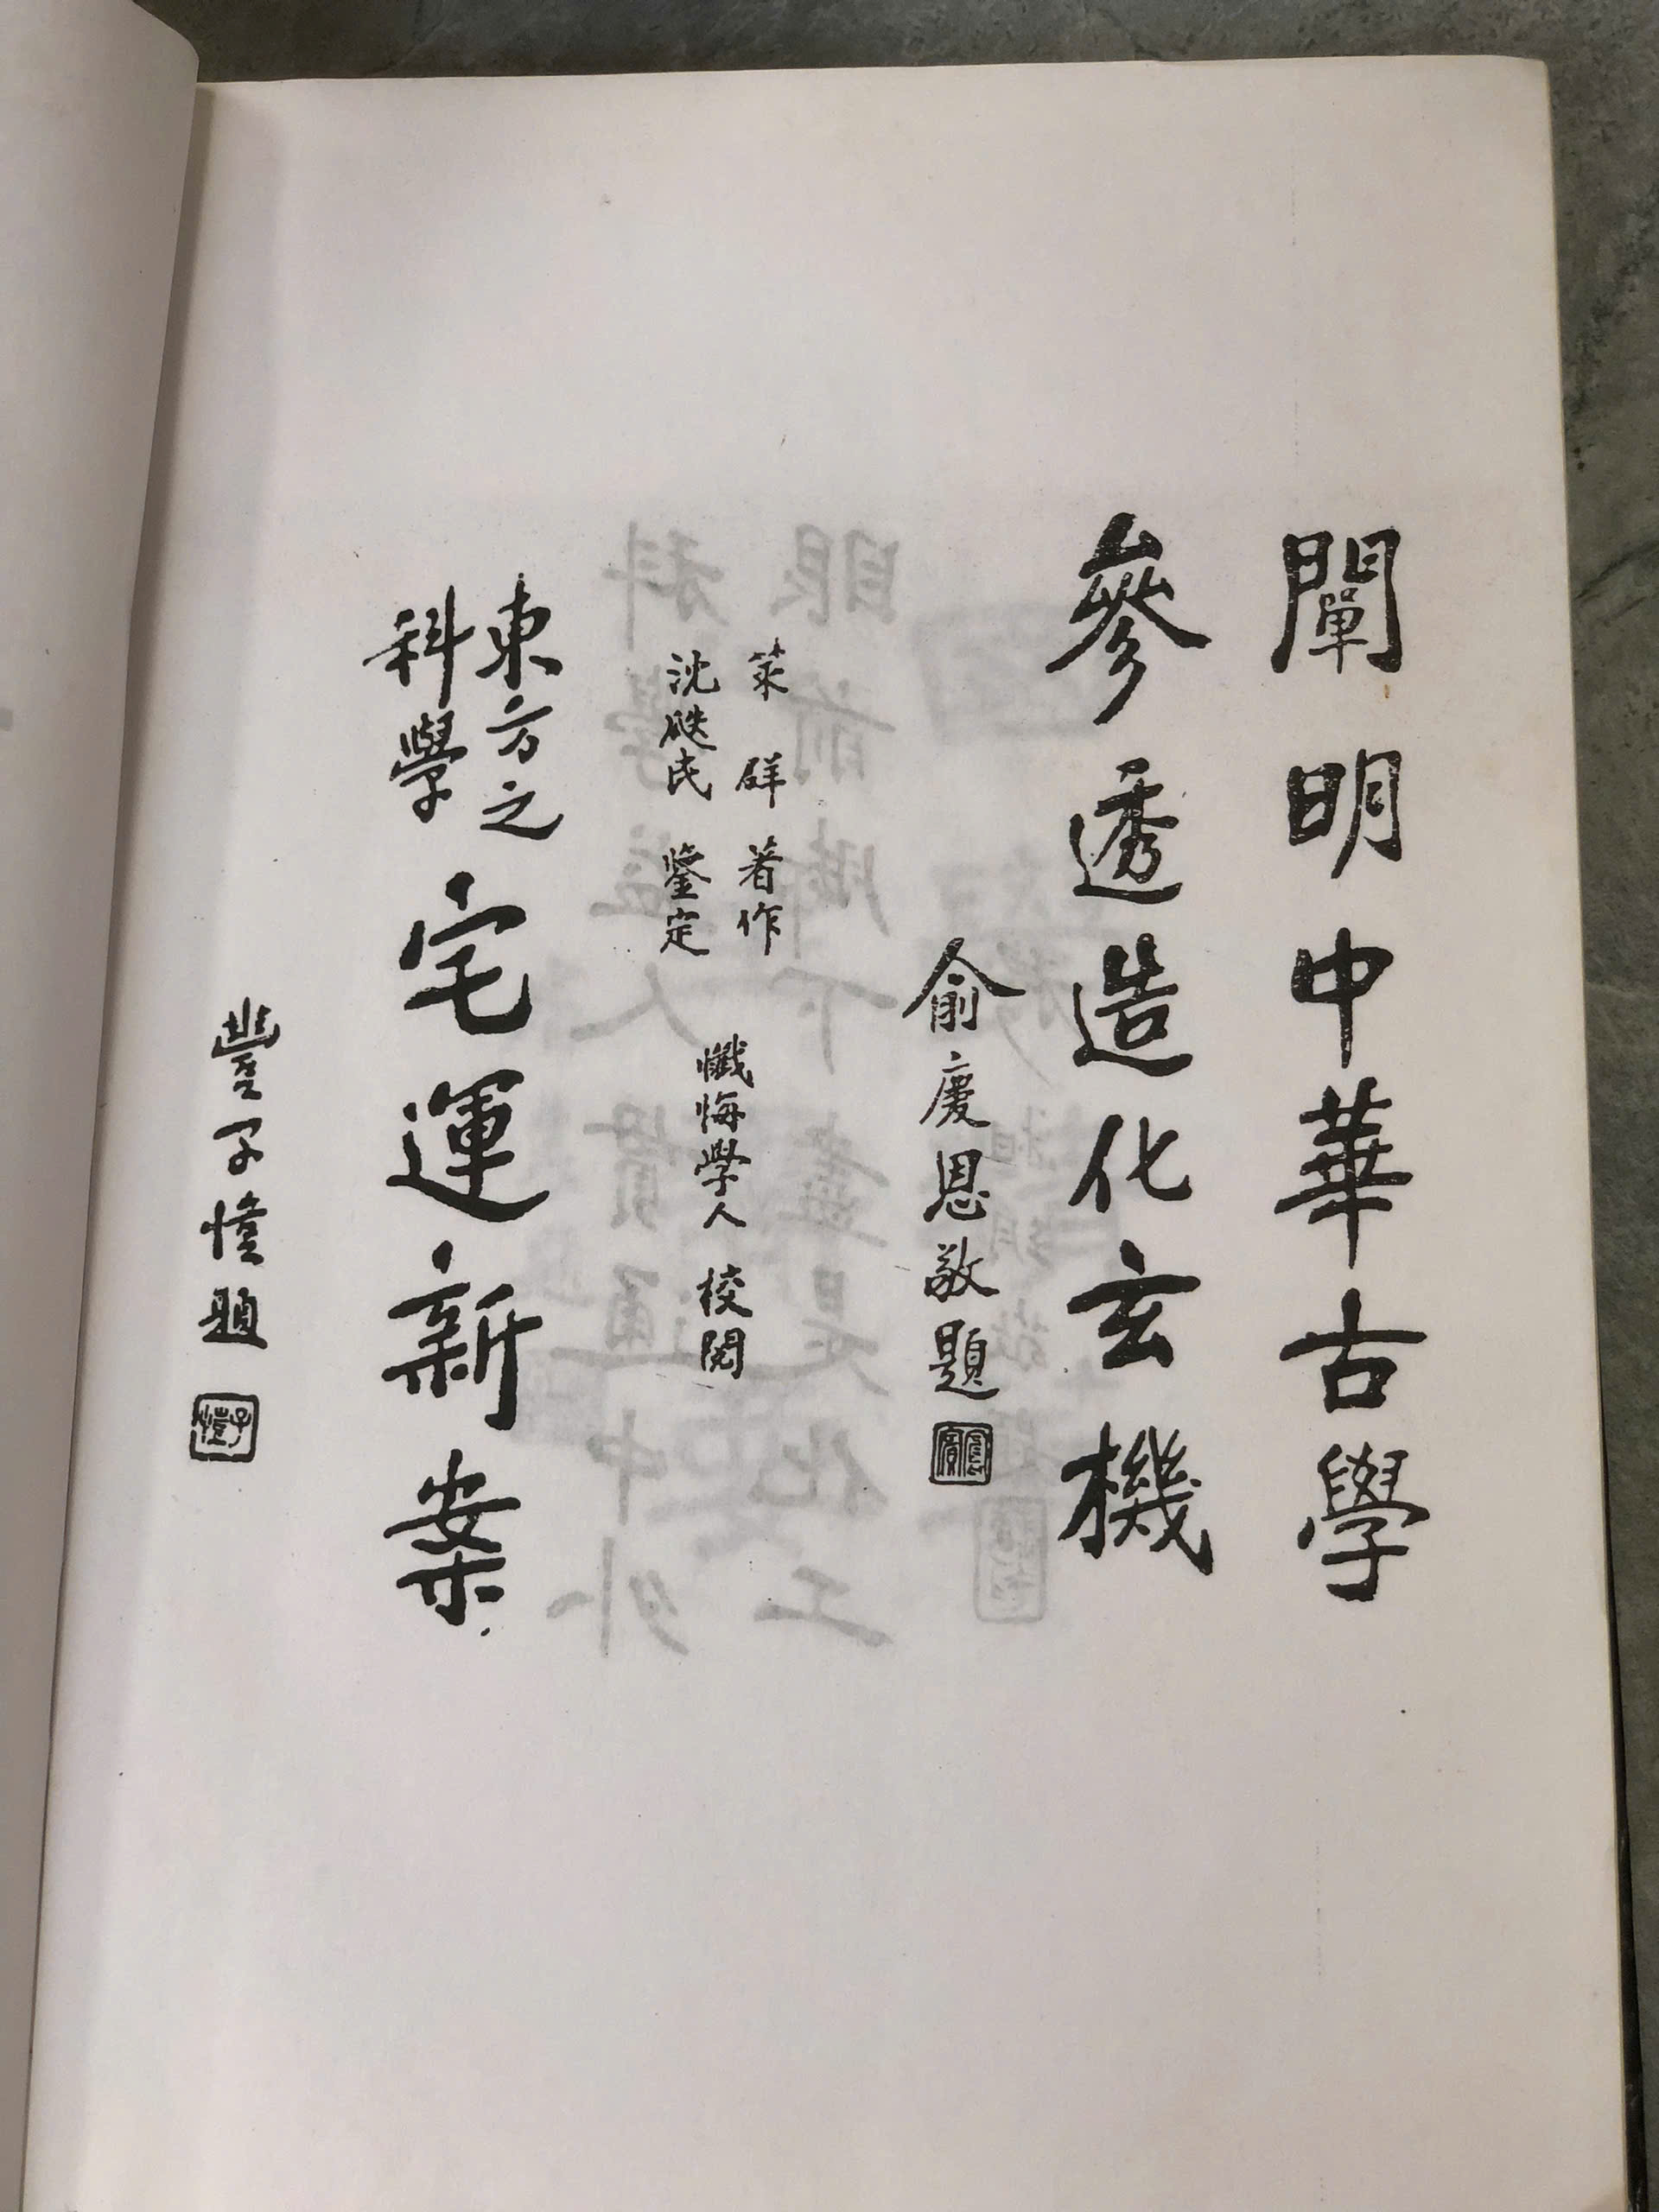 闡明中華古學
參透造化玄機
俞慶恩敬題
著作
沈瓞民 鑒定
懺悔學人 校閱
東方之
科學
宅運新案
豐子愷題
子愷